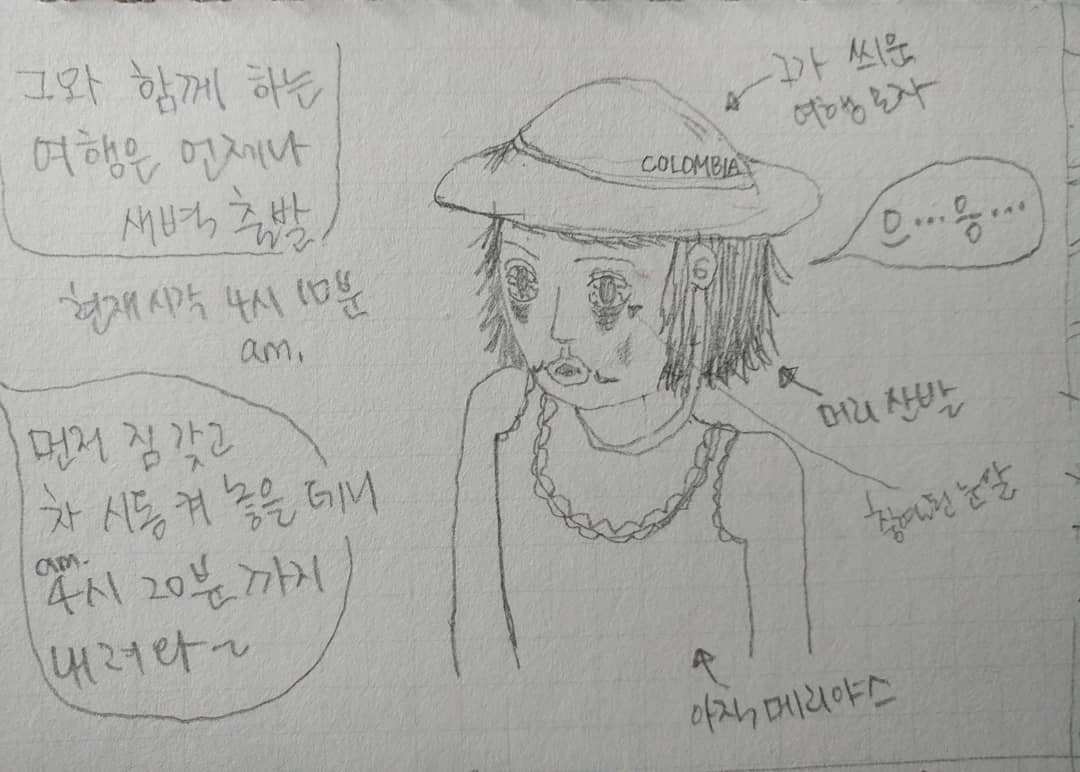 그와 함께 하는
여행은 언제나
새벽 출발
현재시각 4시 10분
am.
먼저 짐 갖고
차 시동 켜 놓을 테니
am.
4시 20분까지
내려와~
그가 씌운
여행모자
COLOMBIA
으...응...
머리 산발
눈알
아직 메리야스